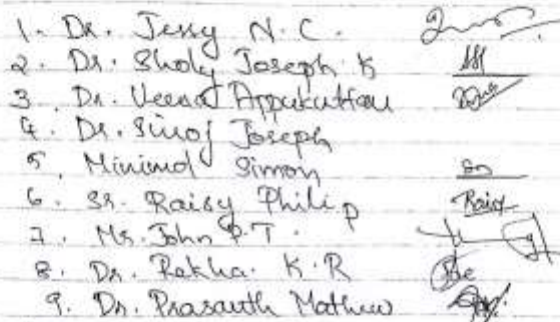 1. Dr. Jessy N.C.
2. Dr. Sholy Joseph K
3. Dr. Veena Appukuttan
4. Dr. Sinoj Joseph
5. Simon
6. Sr. Raisy Philip
7. Mr. John P.T.
8. Dr. Rekha. K.R
9. Dr. Prasanth Mathew